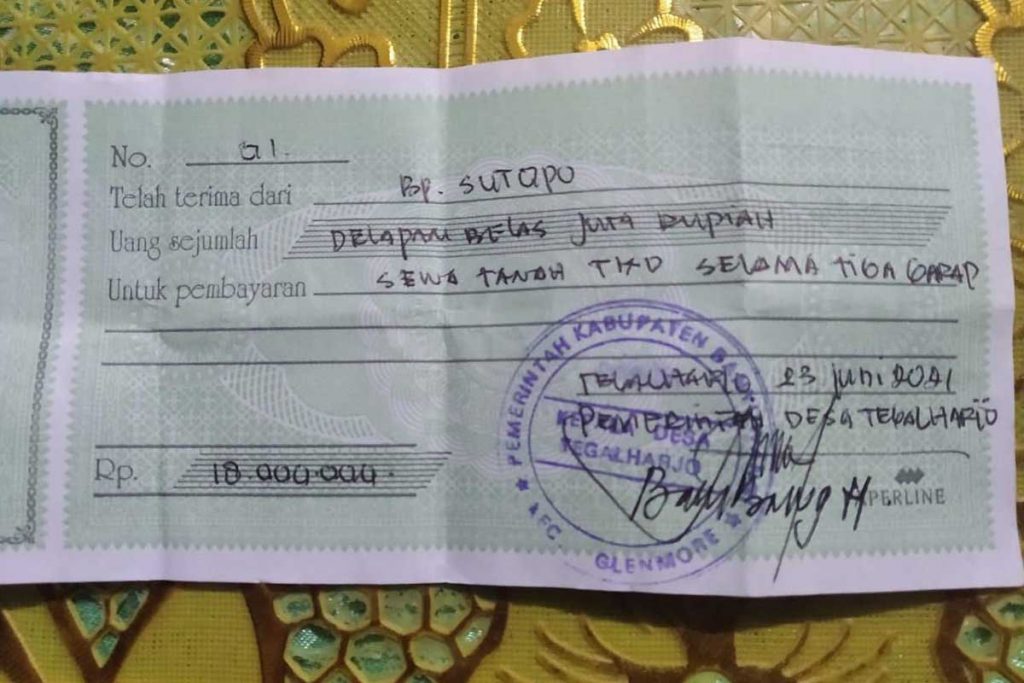 No. 01.
Telah terima dari Bp. SUTOPO
Uang sejumlah DELAPAN BELAS JUTA RUPIAH
Untuk pembayaran SEWA TANAH TKD SELAMA TIGA GARAP
TEGALHARJO, 23 Juni 2021
PEMERINTAH DESA TEGALHARJO
Rp. 18.000.000.
PAPERLINE
PEMERINTAH KABUPATEN
KEPALA DESA
TEGALHARJO
KEC. GLENMORE